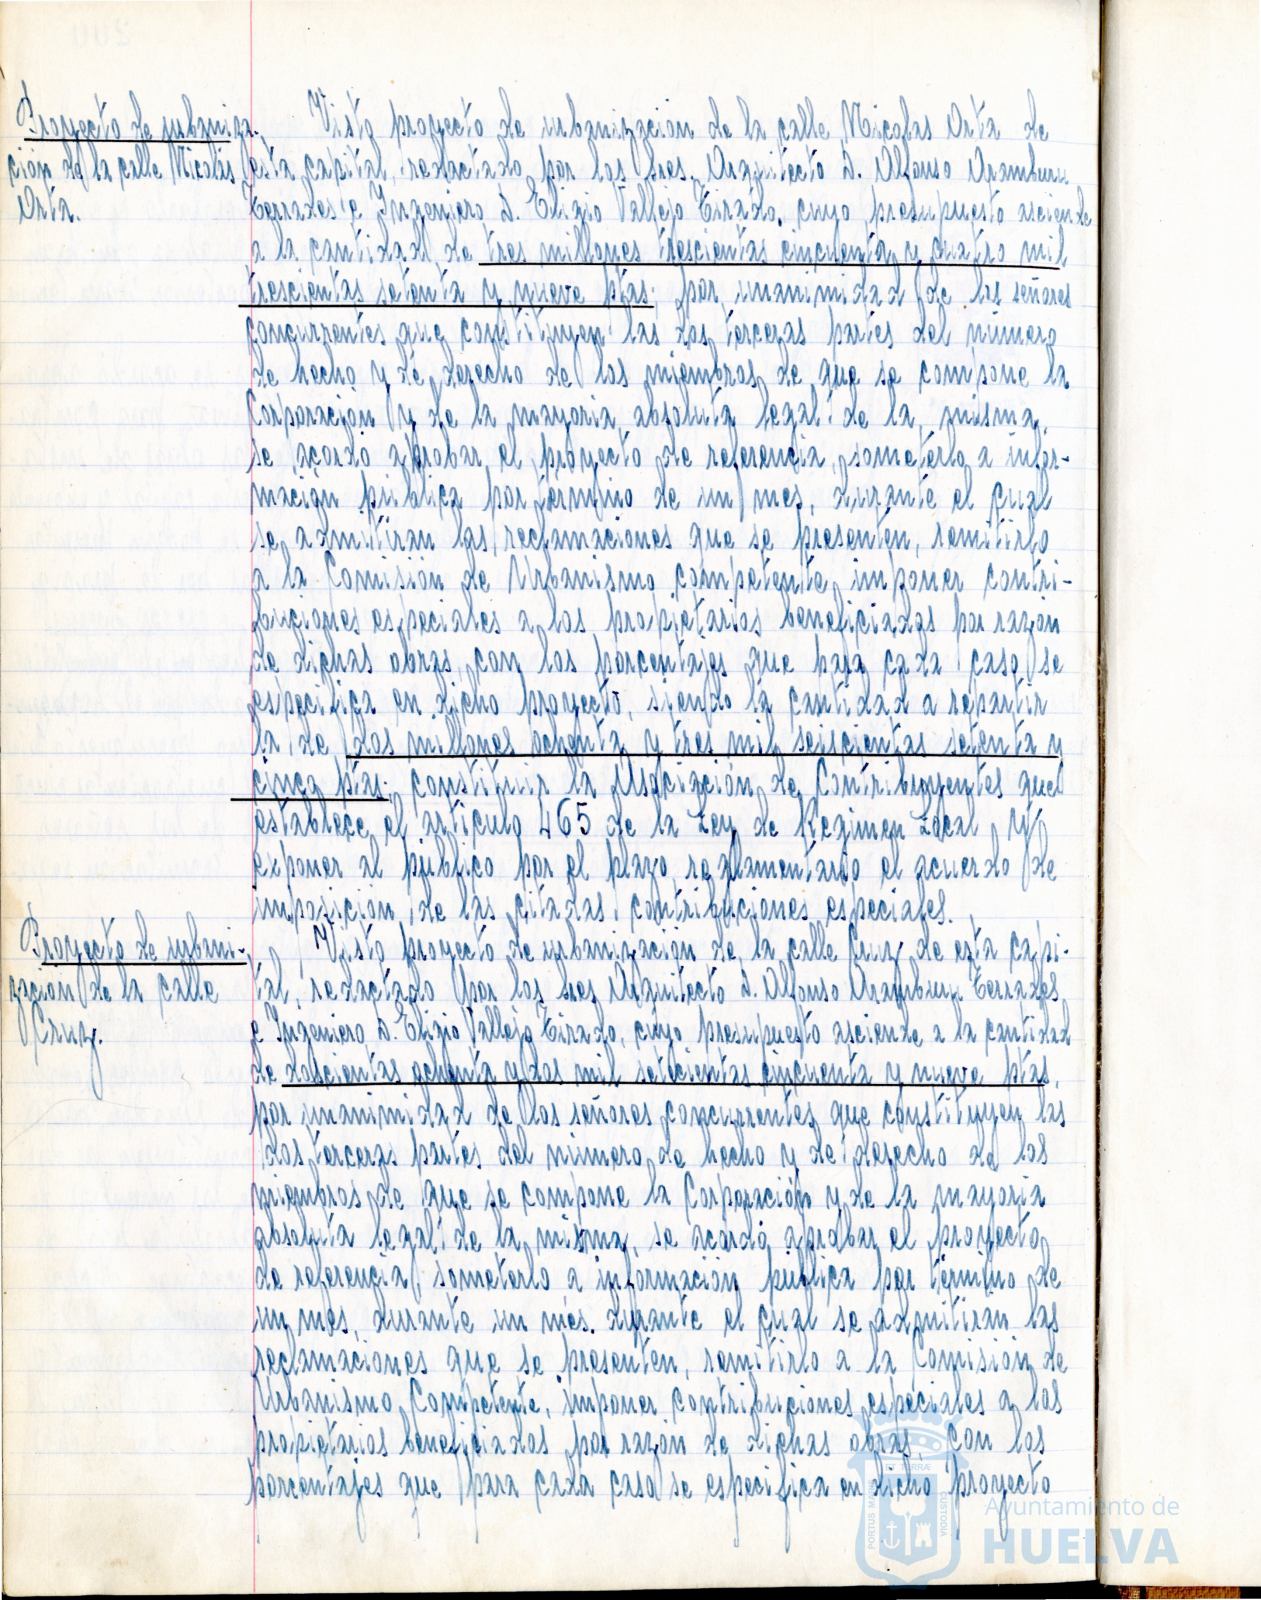 Proyecto de urbaniza-
ción de la calle Nicolás
Orta.
Visto proyecto de urbanización de la calle Nicolas Orta de
esta capital, redactado por los Sres. Arquitecto D. Alfonso Aramburu
Terrades e Ingeniero D. Eligio Vallejo Tirado, cuyo presupuesto asciende
a la cantidad de tres millones trescientas cincuenta y cuatro mil
trescientas setenta y nueve ptas; por unanimidad de los señores
concurrentes que constituyen las dos terceras partes del número
de hecho y de derecho de los miembros de que se compone la
Corporación y de la mayoria absoluta legal de la misma,
se acordó aprobar el proyecto de referencia, someterlo a infor-
mación pública por término de un mes, durante el cual
se admitiran las reclamaciones que se presenten, remitirlo
a la Comisión de Urbanismo competente, imponer contri-
buciones especiales a los propietarios beneficiados por razón
de dichas obras, con los porcentajes que para cada caso se
especifica en dicho proyecto, siendo la cantidad a repartir
la de dos millones ochenta y tres mil seiscientas setenta y
cinco ptas; constituir la Asociación de Contribuyentes que
establece el artículo 465 de la Ley de Regimen Local y
exponer al público por el plazo reglamentario el acuerdo de
imposición de las citadas contribuciones especiales.
Proyecto de urbani-
zación de la calle
Cruz.
Visto proyecto de urbanización de la calle Cruz de esta capi-
tal, redactado por los Sres Arquitecto D. Alfonso Aramburu Terrades
e Ingeniero D. Eligio Vallejo Tirado, cuyo presupuesto asciende a la cantidad
de doscientas ochenta y dos mil setecientas cincuenta y nueve ptas,
por unanimidad de los señores concurrentes que constituyen las
dos terceras partes del número de hecho y de derecho de los
miembros de que se compone la Corporación y de la mayoria
absoluta legal de la misma, se acordó aprobar el proyecto
de referencia, someterlo a información pública por término de
un mes, durante un mes. durante el cual se admitiran las
reclamaciones que se presenten, remitirlo a la Comisión de
Urbanismo Competente, imponer contribuciones especiales a los
propietarios beneficiados por razón de dichas obras, con los
porcentajes que para cada caso se especifica en dicho proyecto
PORTUS MARIS ET TERRAE CUSTODIA
Ayuntamiento de
HUELVA